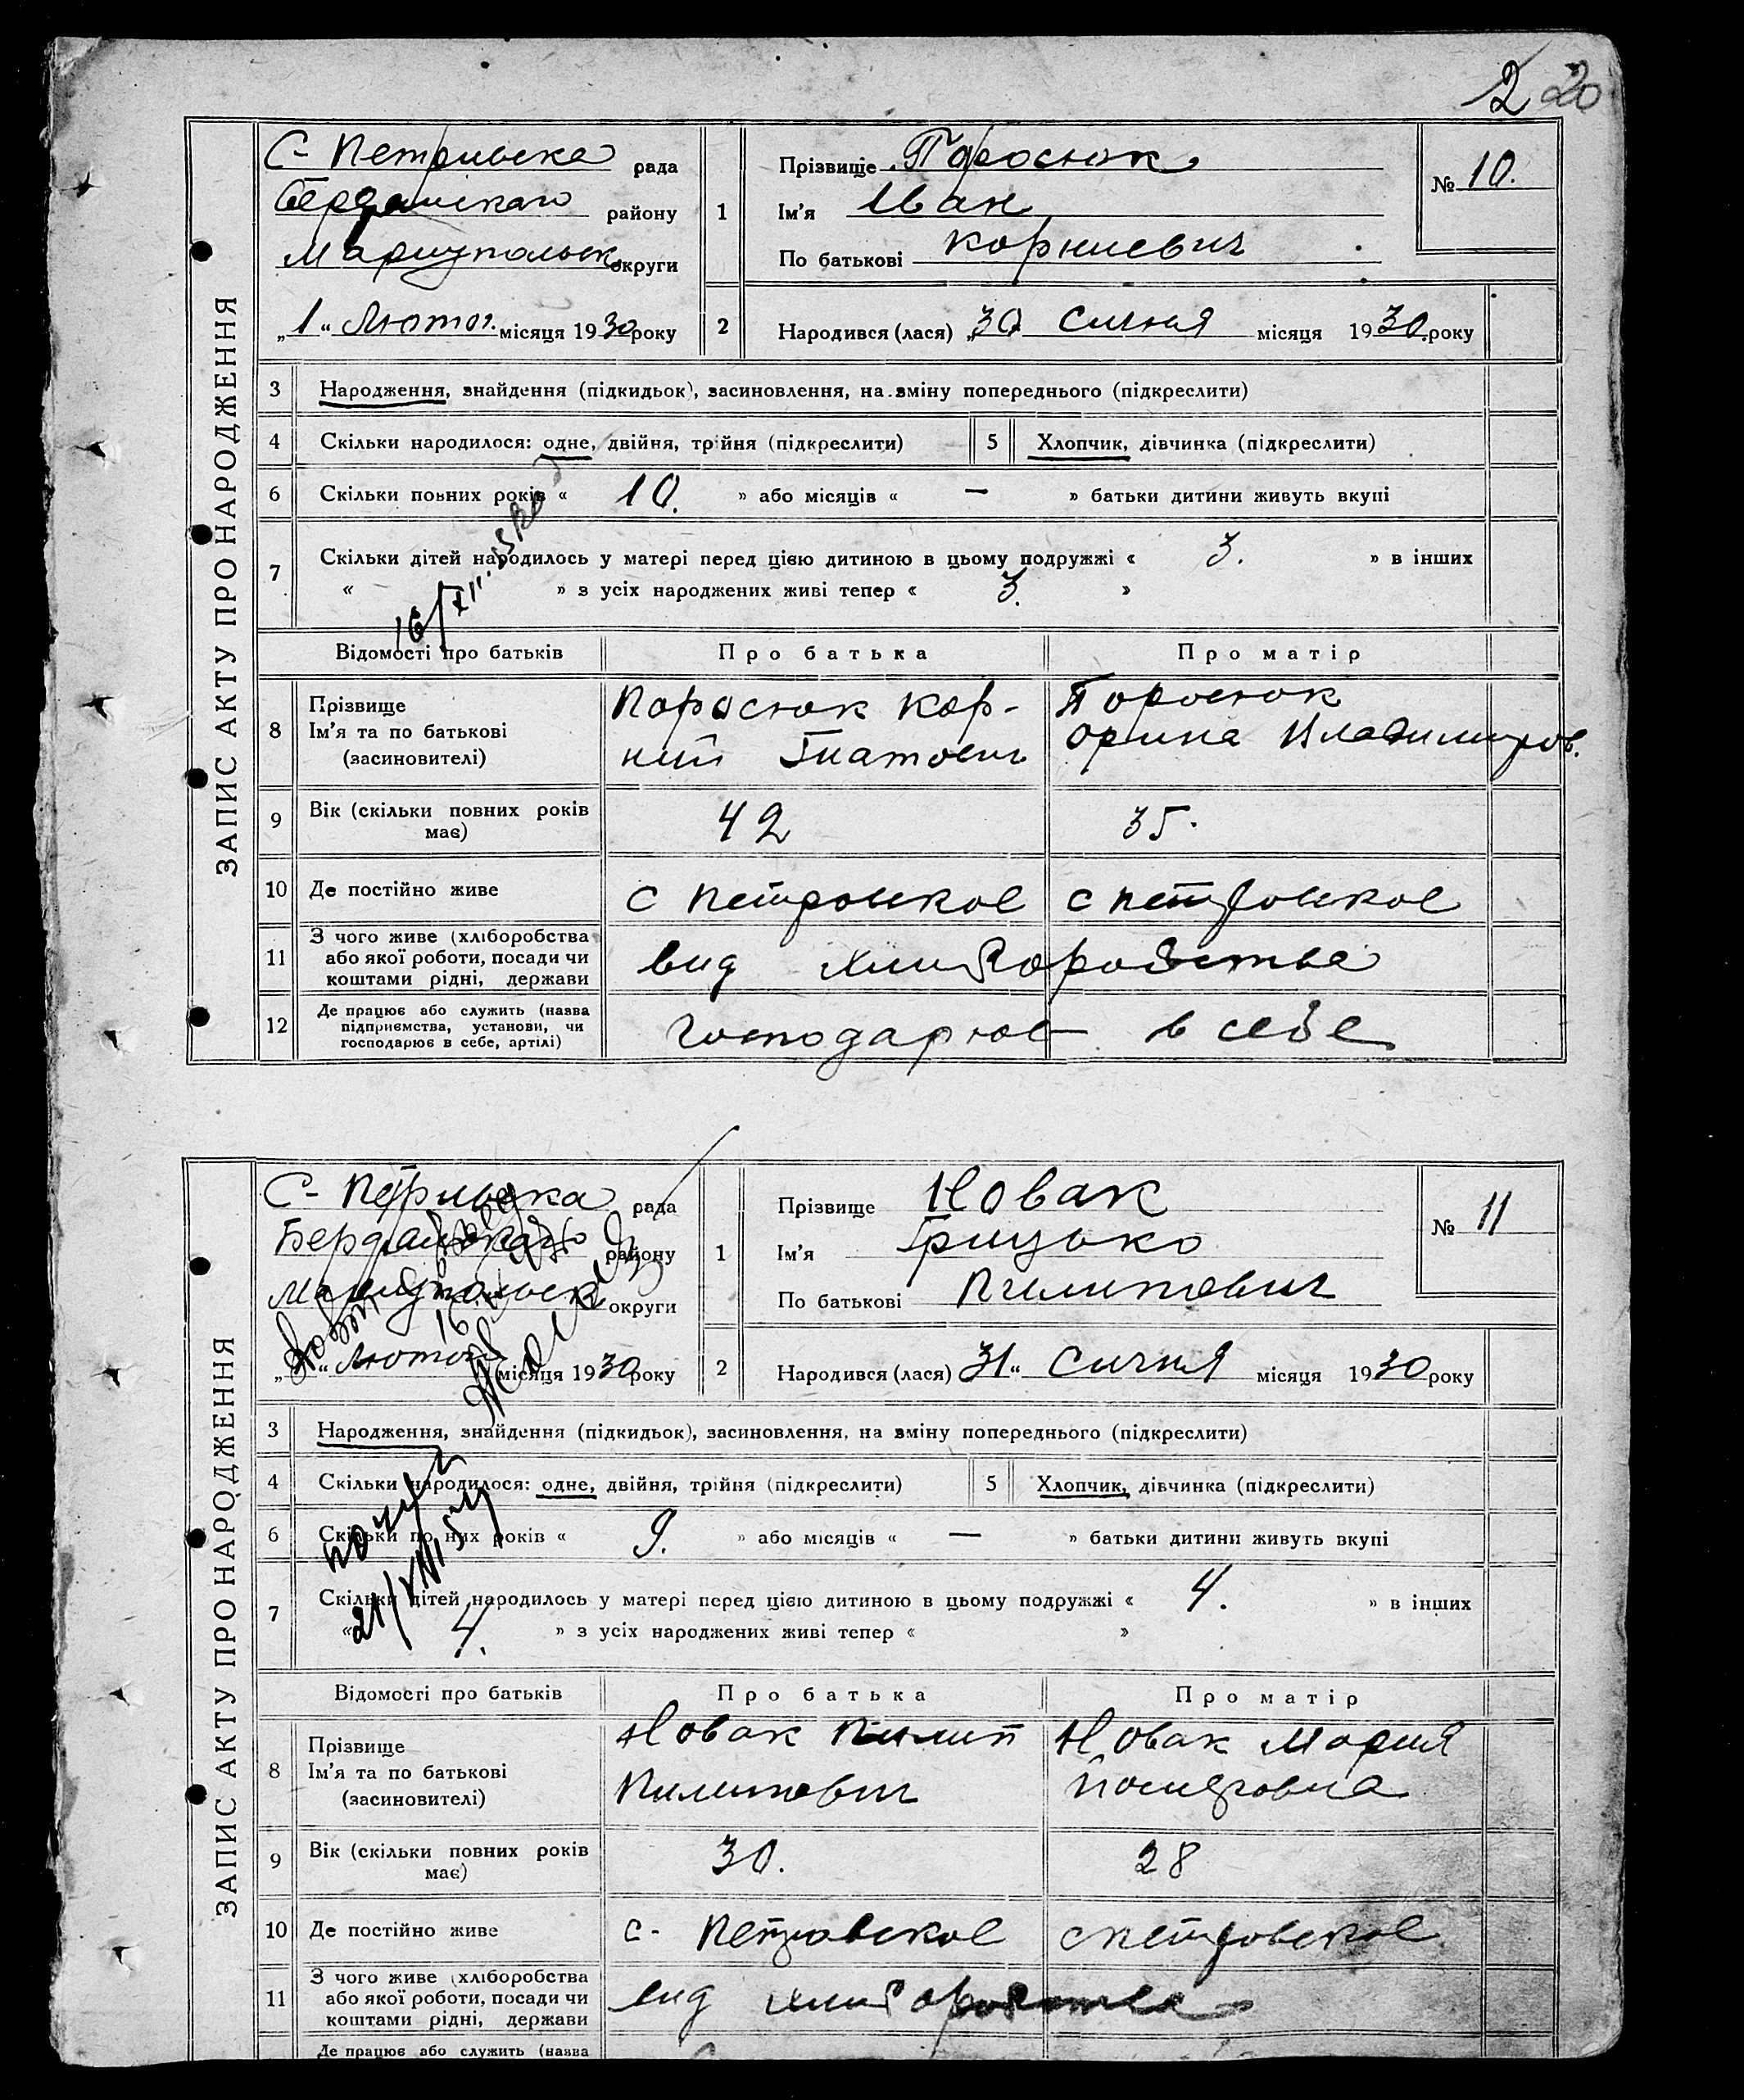 2 20
ЗАПИС АКТУ ПРО НАРОДЖЕННЯ
С- Петривска рада
Бердянскаго району
Мариупольск. округи
„1“ Лютог. місяця 1930 року
1
Прізвище Поросюк
Ім'я Иван
По батькові Корниевич
№ 10.
2
Народився (лася) „30 Сичня місяця 1930. року
3 Народження, знайдення (підкидьок), засиновлення, на зміну попереднього (підкреслити)
4 Скільки народилося: одне, двійня, трійня (підкреслити)
5 Хлопчик, дівчинка (підкреслити)
6 Скільки повних років « 10. » або місяців « — » батьки дитини живуть вкупі
7 Скільки дітей народилось у матері перед цією дитиною в цьому подружжі « 3. » в інших
« » з усіх народжених живі тепер « 3. »
16/XII.
Відомості про батьків Про батька Про матір
8
Прізвище
Ім'я та по батькові
(засиновителі)
Поросюк Кор-
ний Гнатович
Поросюк
Орина Владимиров.
9 Вік (скільки повних років має) 42 35.
10 Де постійно живе с Петровское с Петровское
11 З чого живе (хліборобства
або якої роботи, посади чи
коштами рідні, держави
вид хлиборобства
12 Де працює або служить (назва
підприємства, установи, чи
господарює в себе, артілі)
Господарює в себе
ЗАПИС АКТУ ПРО НАРОДЖЕННЯ
С- Петривска рада
Бердянскаго району
Мариупольск округи
„ “ Лютого місяця 1930 року
1
Прізвище Новак
Ім'я Грицько
По батькові Пилипович
№ 11
2
Народився (лася) 31“ Сичня місяця 1930 року
3 Народження, знайдення (підкидьок), засиновлення, на зміну попереднього (підкреслити)
4 Скільки народилося: одне, двійня, трійня (підкреслити)
5 Хлопчик, дівчинка (підкреслити)
6 Скільки повних років « 9. » або місяців « — » батьки дитини живуть вкупі
7 Скільки дітей народилось у матері перед цією дитиною в цьому подружжі « 4. » в інших
« 4. » з усіх народжених живі тепер « »
Відомості про батьків Про батька Про матір
8
Прізвище
Ім'я та по батькові
(засиновителі)
Новак Пилип
Пилипович
Новак Мария
9 Вік (скільки повних років має) 30. 28
10 Де постійно живе с- Петровское с Петровское
11 З чого живе (хліборобства
або якої роботи, посади чи
коштами рідні, держави
вид хлиборобства
Де працює або служить (назва